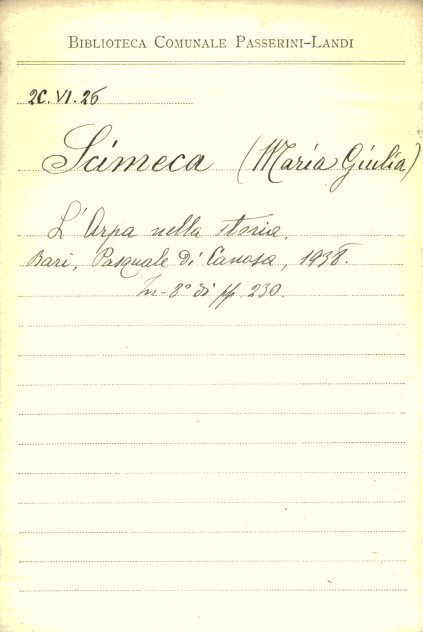 BIBLIOTECA COMUNALE PASSERINI-LANDI
2C.VI.26
Scimeca (Maria Giulia)
L'Arpa nella storia.
Bari, Pasquale di Canosa, 1938.
In-8° di pp. 230.